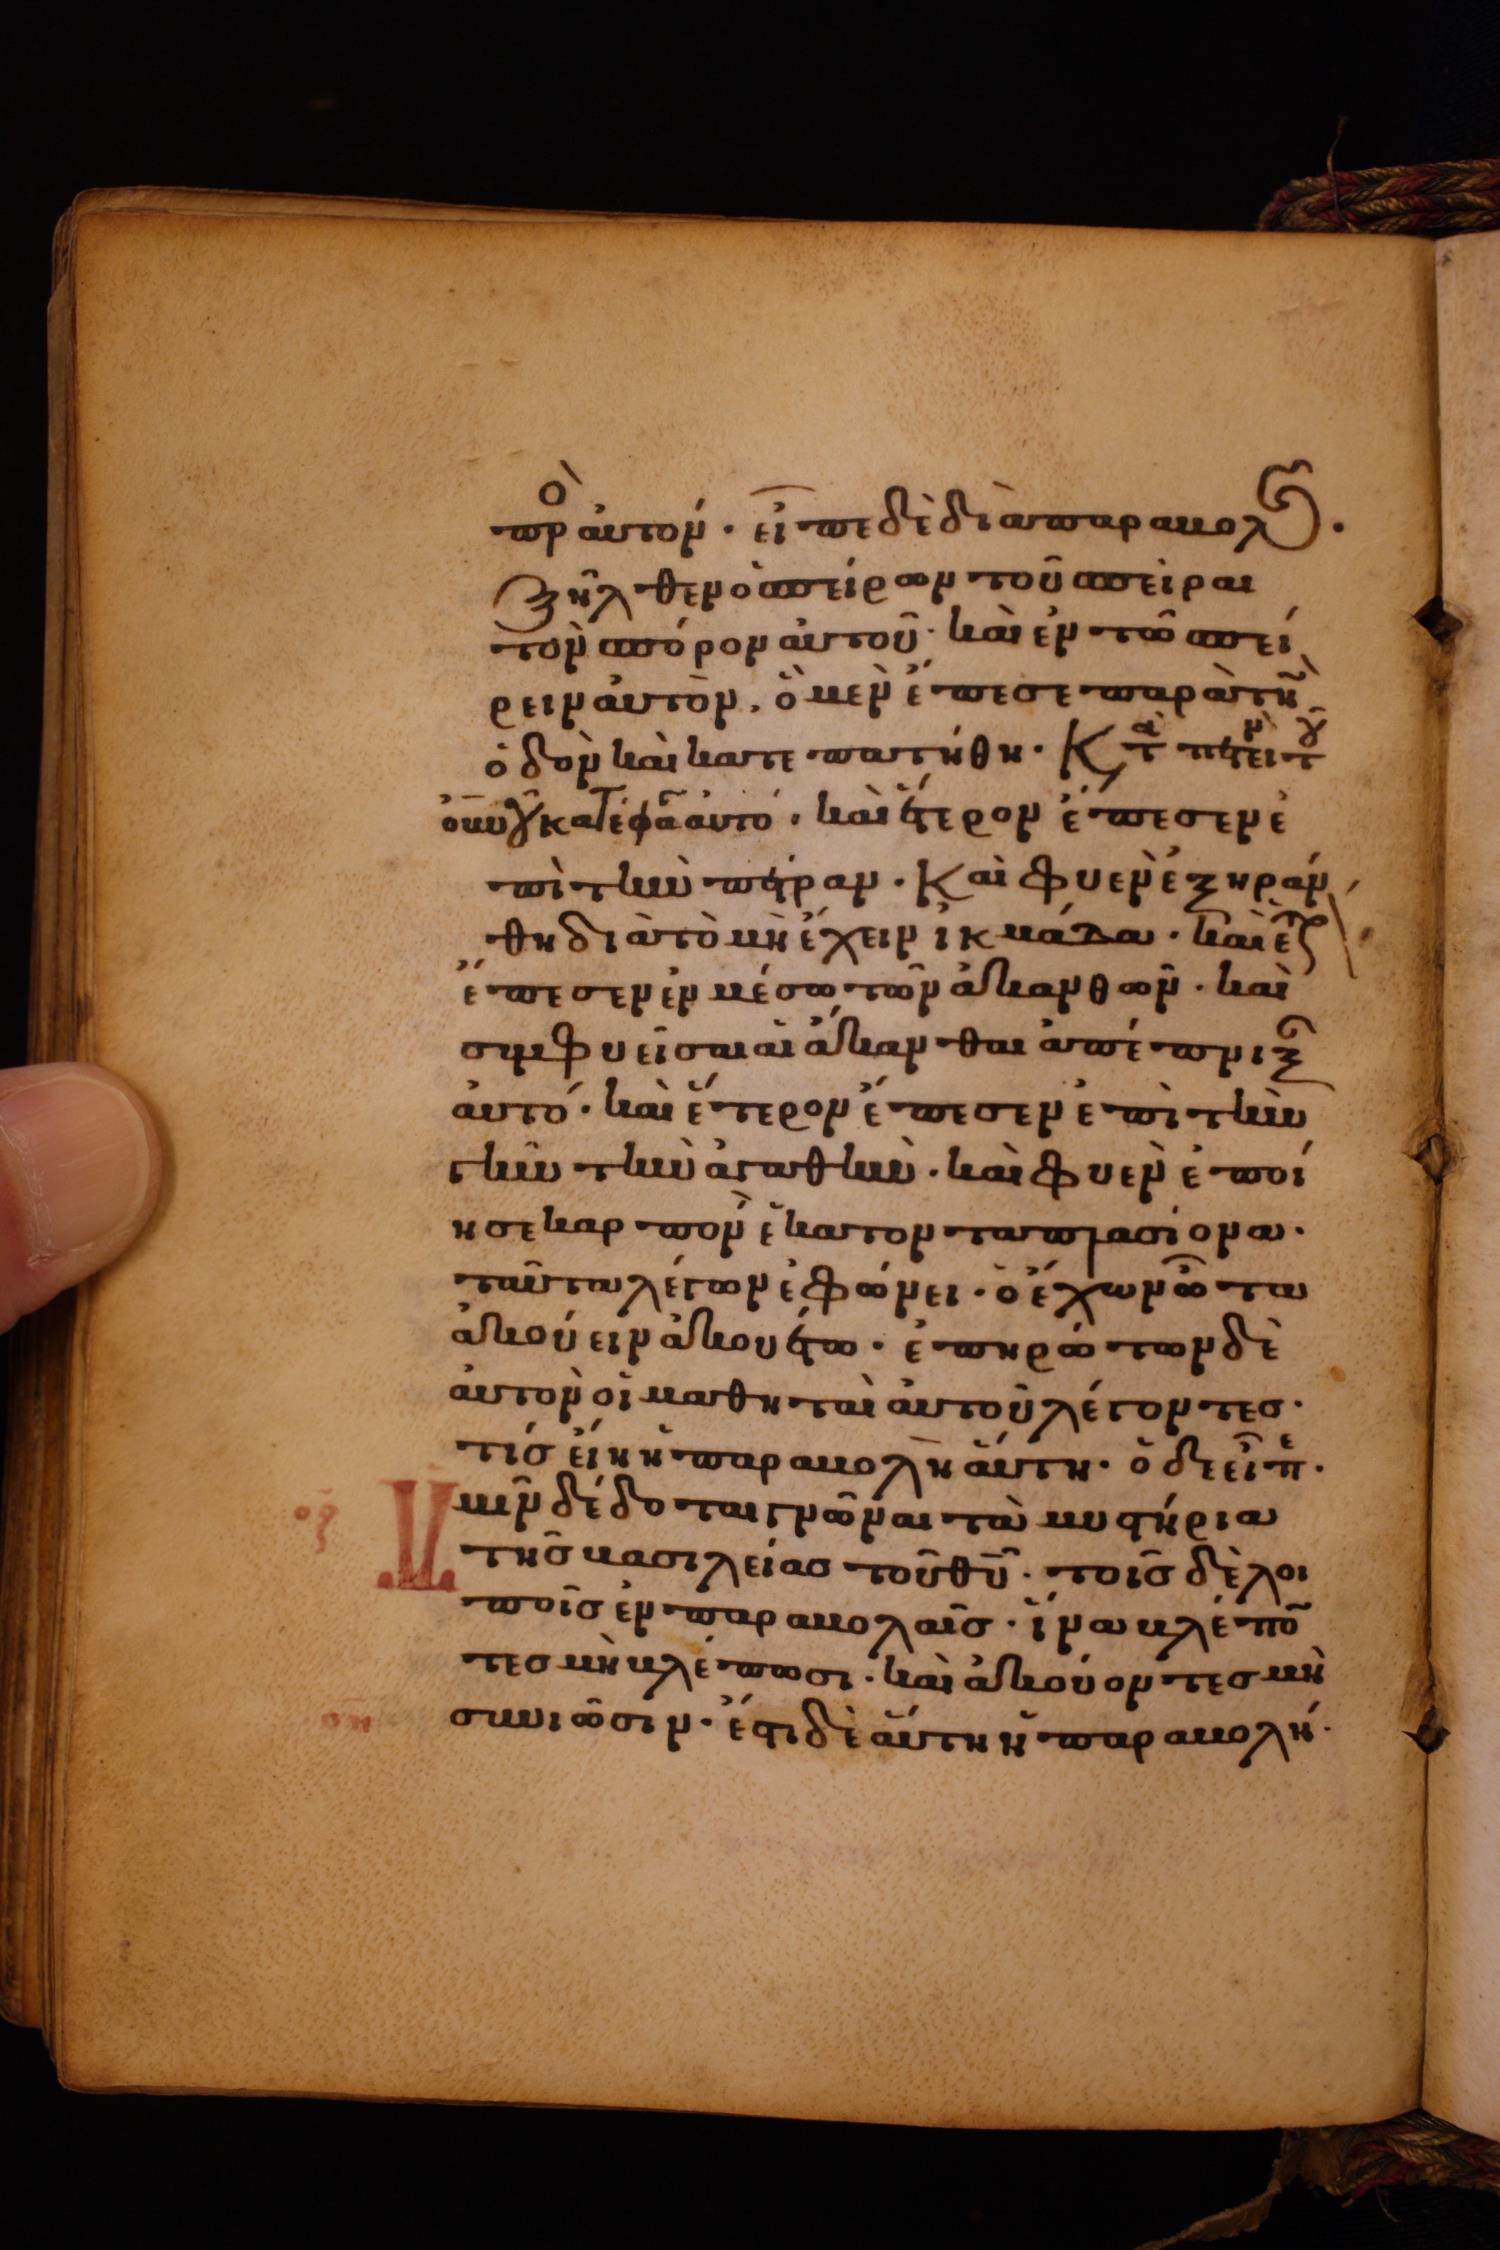 πρὸ αὐτόν· εἶπε δὲ διὰ παραβολῆς·
ἐξῆλθεν ὁ σπείρων τοῦ σπεῖραι
τὸν σπόρον αὐτοῦ· καὶ ἐν τῶ σπεί
ρειν αὐτὸν, ὃ μὲν ἔπεσε παρὰ τὴν
ὁδὸν καὶ κατεπατήθη· Κ τὰ πετεινὰ τοῦ
οὐνοῦ κατέφαγεν αὐτό· καὶ ἕτερον ἔπεσεν ἐ
πὶ τὴν πέτραν· Καὶ φυὲν ἐξηράν
θη διὰ τὸ μὴ ἔχειν ἰκμάδα· καὶ ἕτερον
ἔπεσεν ἐν μέσω τῶν ἀκανθῶν· καὶ
συμφυεῖσαι αἱ ἄκανθαι ἀπέπνιξαν
αὐτό· καὶ ἕτερον ἔπεσεν ἐπὶ τὴν
γῆν τὴν ἀγαθὴν· καὶ φυὲν ἐποί
ησε καρπὸν ἑκατονταπλασίονα·
ταῦτα λέγων ἐφώνει· ὁ ἔχων ὦτα
ἀκούειν ἀκουέτω· ἐπηρώτων δὲ
αὐτὸν οἱ μαθηταὶ αὐτοῦ λέγοντες·
τίς εἴη ἡ παραβολὴ αὕτη· ὁ δὲ εἶπ·
Ὑμῖν δέδοται γνῶναι τὰ μυστήρια
τῆς βασιλείας τοῦ θῦ· τοῖς δὲ λοι
ποῖς ἐν παραβολαῖς· ἵνα βλέπον
τες μὴ βλέπωσι· καὶ ἀκούοντες μὴ
συνιῶσιν· ἔστι δὲ αὕτη ἡ παραβολή·